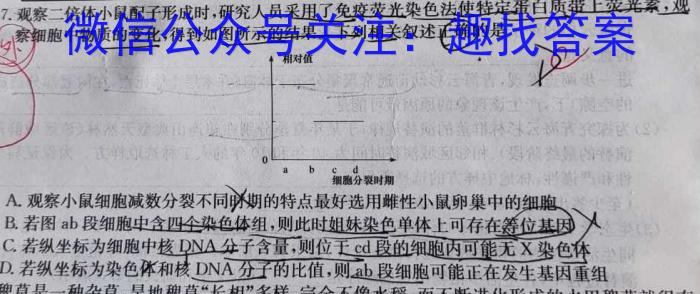 7.观察二倍体小鼠配子形成时,研究人员采用了免疫荧光染色法使特定蛋白质带上荧光素,观
察细胞中物质的变化,得到如图所示的结果。下列相关叙述正确的是
微信公众号关注:趣找答案
相对值
0
a b c d
细胞分裂时期
A. 观察小鼠细胞减数分裂不同时期的特点最好选用雌性小鼠卵巢中的细胞
B. 若图 ab 段细胞中含四个染色体组,则此时姐妹染色单体上可存在等位基因
C. 若纵坐标为细胞中核 DNA 分子含量,则位于 cd 段的细胞内可能无 X 染色体
D. 若纵坐标为染色体和核 DNA 分子的比值,则 ab 段细胞可能正在发生基因重组